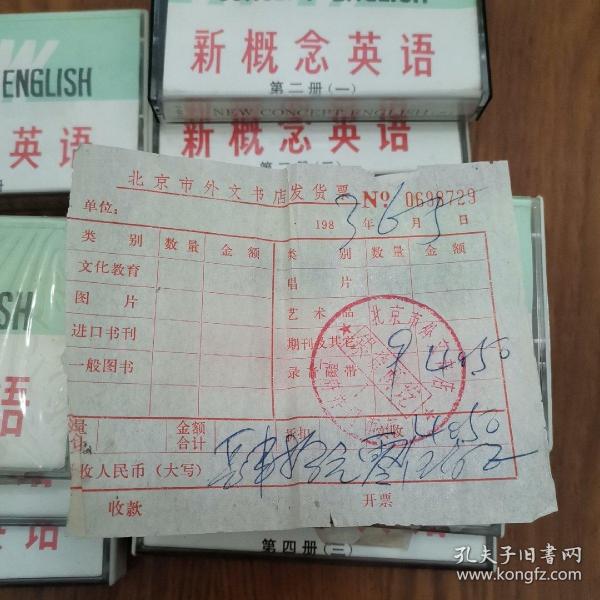 CONCEPT ENGLISH
新概念英语
第二册(一)
NEW CONCEPT ENGLISH
新概念英语
ENGLISH
英语
北京市外文书店发货票
No 0698729
单位:
1983年6月5日
类别 数量 金额 类别 数量 金额
文化教育 唱片
图片 艺术品
进口书刊 期刊及其它
一般图书 录音磁带 9 40.50
金额合计 折扣 实收 40.50
收人民币(大写) 肆拾元零
收款 开票
SH
语
英语
第四册(三)
孔夫子旧书网
www.kongfz.com